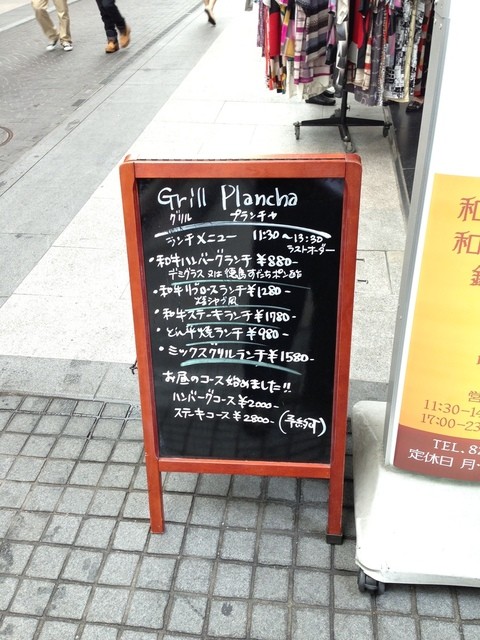 Grill Plancha
グリル プランチャ
ランチメニュー 11:30~13:30
ラストオーダー
・和牛ハンバーグランチ ¥880-
デミグラス 又は 徳島すだちポン酢
・和牛リブロースランチ ¥1280-
・和牛ステーキランチ ¥1780-
・とん平焼ランチ ¥980-
・ミックスグリルランチ ¥1580-
お昼のコース始めました!!
ハンバーグコース ¥2000-
ステーキコース ¥2800-
和
和
営
11:30-14
17:00-23
TEL.
定休日 月